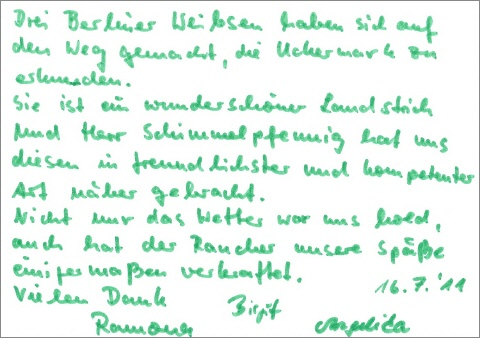 Drei Berliner Weibsen haben sich auf
den Weg gemacht, die Uckermark zu
erkunden.
Sie ist ein wunderschöner Landstrich
und Herr Schimmelpfennig hat uns
diesen in freundlichster und kompetenter
Art näher gebracht.
Nicht nur das Wetter war uns hold,
auch hat der Rancher unsere Späße
einigermaßen verkraftet.
16.7.'11
Vielen Dank Birgit
Ramona Angelika